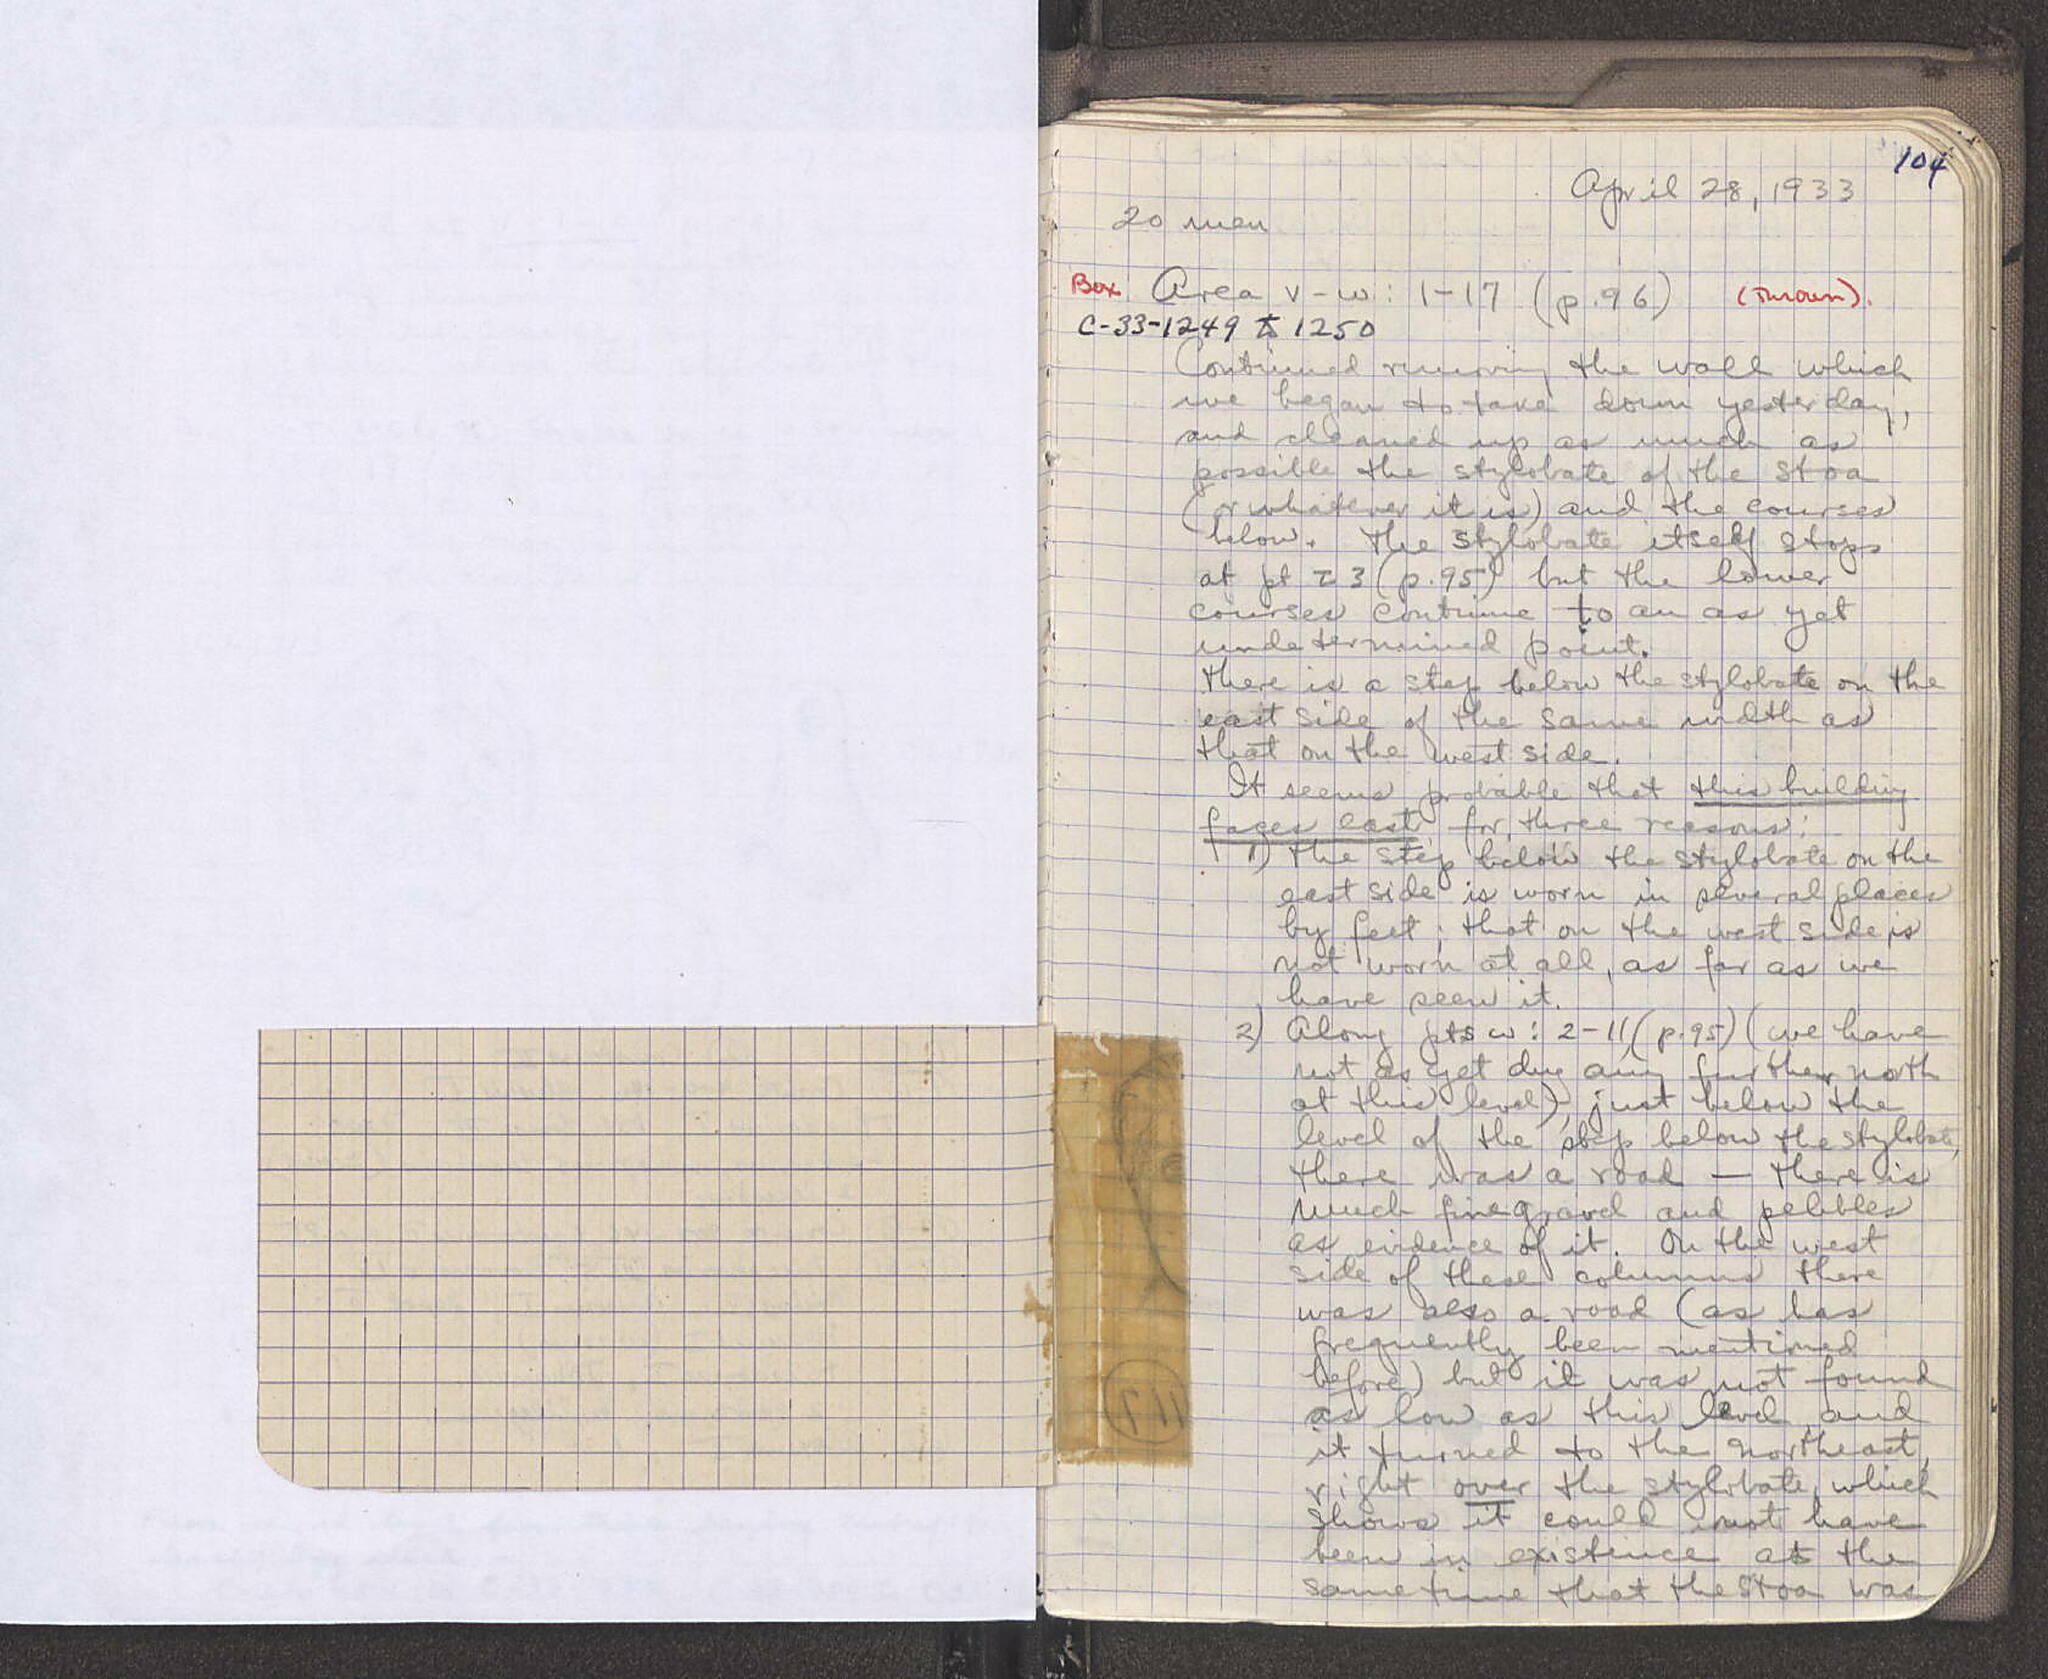 104
April 28, 1933
20 men
Box Area V-W: 1-17 (p.96) (thrown).
C-33-1249 to 1250
Continued removing the wall which
we began to take down yesterday,
and cleaned up as much as
possible the stylobate of the stoa
(or whatever it is) and the courses
below. The stylobate itself stops
at pt I 3 (p.95) but the lower
courses continue to an as yet
undetermined point.
There is a step below the stylobate on the
east side of the same width as
that on the west side.
It seems probable that this building
faces east for three reasons:
1) The step below the stylobate on the
east side is worn in several places
by feet; that on the west side is
not worn at all, as far as we
have seen it.
2) Along pts W: 2-11 (p.95) (we have
not as yet dug any further north
at this level), just below the
level of the step below the stylobate,
there was a road — there is
much fine gravel and pebbles
as evidence of it. On the west
side of these columns there
was also a road (as has
frequently been mentioned
before) but it was not found
as low as this level, and
it turned to the northeast,
right over the stylobate, which
shows it could not have
been in existence at the
same time that the stoa was
117